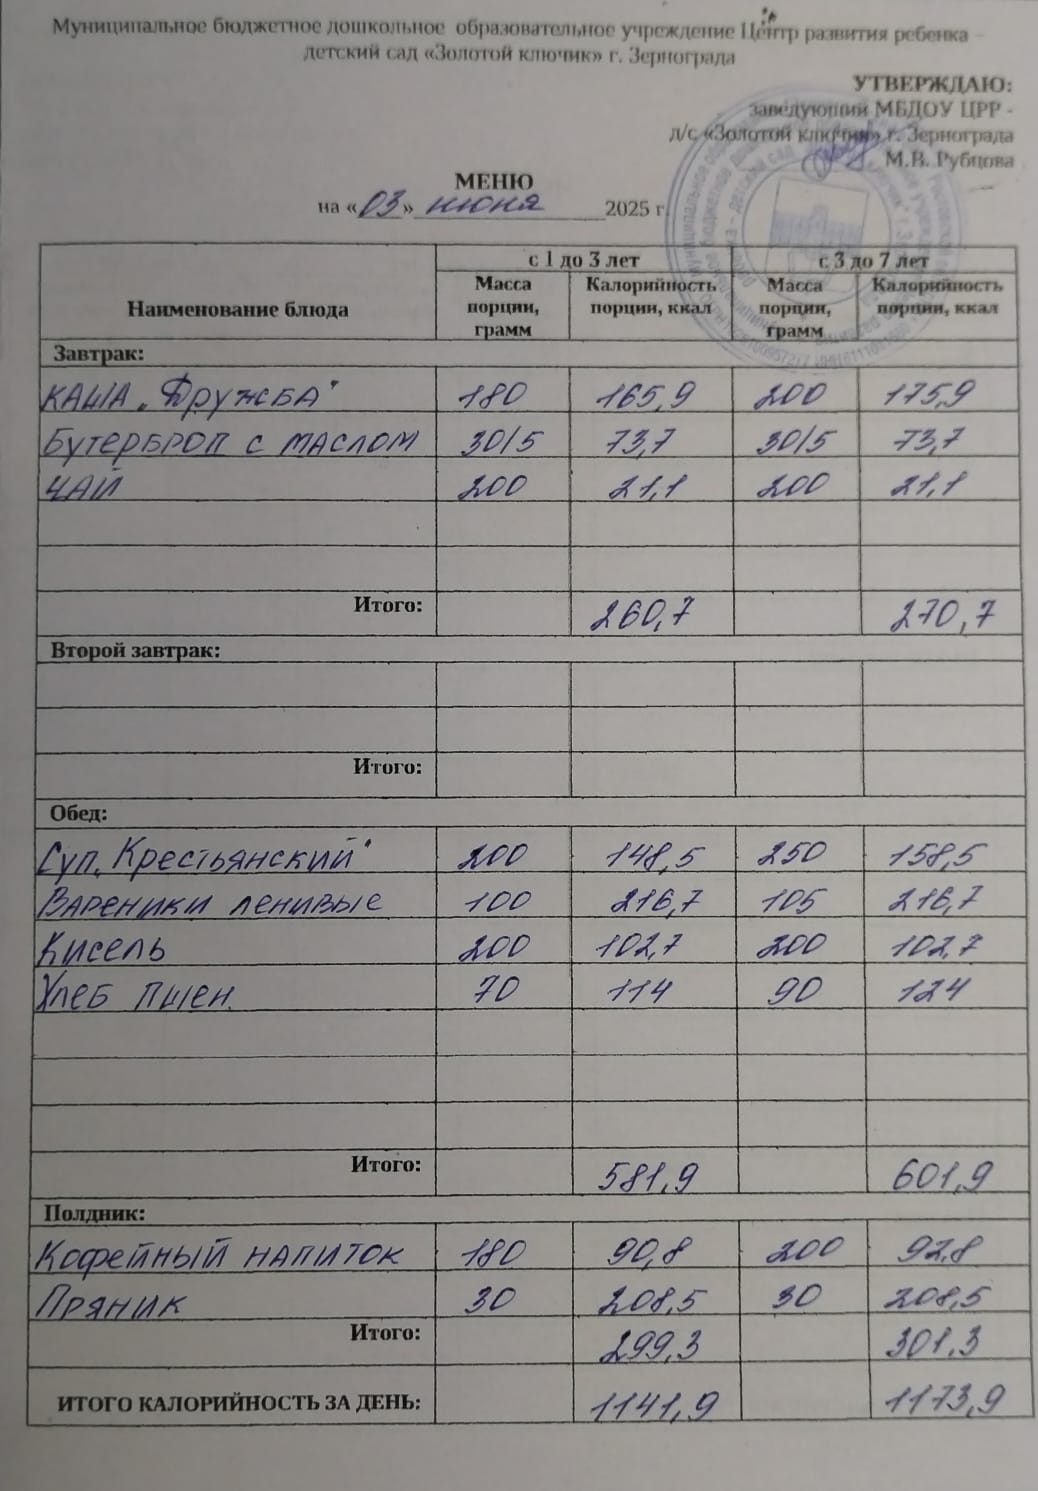 Муниципальное бюджетное дошкольное образовательное учреждение Центр развития ребенка –
детский сад «Золотой ключик» г. Зернограда
УТВЕРЖДАЮ:
заведующий МБДОУ ЦРР -
д/с «Золотой ключик» г. Зернограда
М.В. Рубцова
МЕНЮ
на «03» июня 2025 г.
Наименование блюда с 1 до 3 лет с 3 до 7 лет
Масса порции, грамм Калорийность порции, ккал Масса порции, грамм Калорийность порции, ккал
Завтрак:
КАША „Дружба" 180 165,9 200 175,9
Бутерброд с маслом 30/5 73,7 30/5 73,7
ЧАЙ 200 21,1 200 21,1
Итого: 260,7 270,7
Второй завтрак:
Итого:
Обед:
Суп „Крестьянский" 200 148,5 250 158,5
Вареники ленивые 100 216,7 105 216,7
Кисель 200 102,7 200 102,7
Хлеб пшен. 70 114 90 124
Итого: 581,9 601,9
Полдник:
Кофейный напиток 180 90,8 200 92,8
Пряник 30 208,5 30 208,5
Итого: 299,3 301,3
ИТОГО КАЛОРИЙНОСТЬ ЗА ДЕНЬ: 1141,9 1173,9